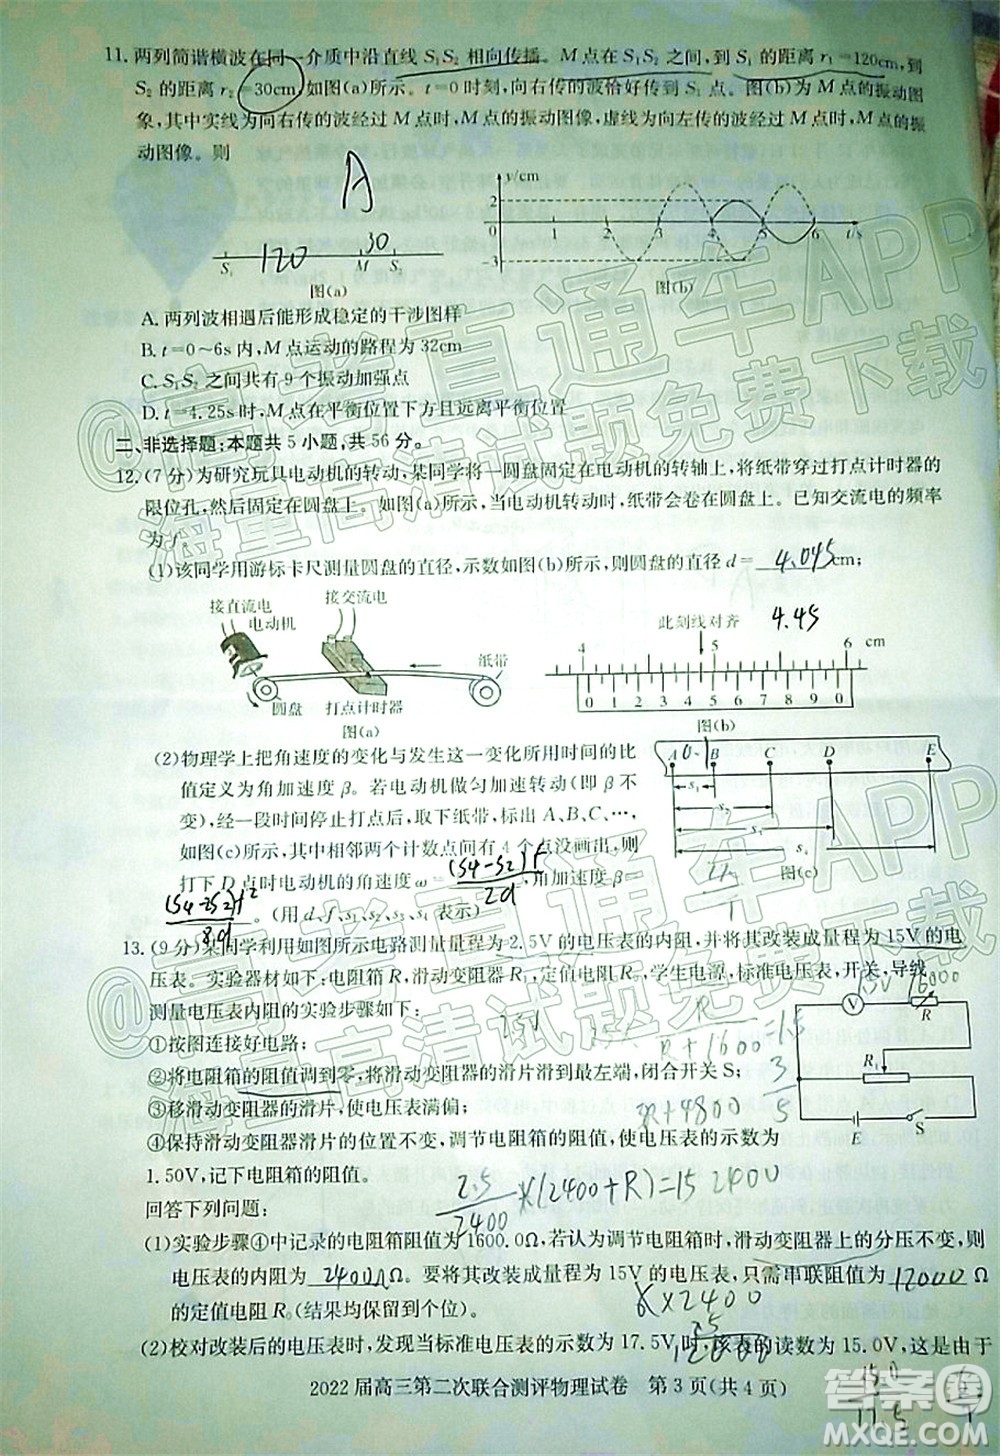 11. 两列简谐横波在同一介质中沿直线 S₁S₂ 相向传播。M 点在 S₁S₂ 之间,到 S₁ 的距离 r₁=120cm,到
S₂ 的距离 r₂=30cm,如图(a)所示。t=0 时刻,向右传的波恰好传到 S₁ 点。图(b)为 M 点的振动图
象,其中实线为向右传的波经过 M 点时,M 点的振动图像,虚线为向左传的波经过 M 点时,M 点的振
动图像。则
A
y/cm
2
0 1 2 3 4 5 6 t/s
-3
120 30
S₁ M S₂
图(a)
图(b)
A. 两列波相遇后能形成稳定的干涉图样
B. t=0~6s 内,M 点运动的路程为 32cm
C. S₁S₂ 之间共有 9 个振动加强点
D. t=4.25s 时,M 点在平衡位置下方且远离平衡位置
二、非选择题:本题共 5 小题,共 56 分。
12. (7 分)为研究玩具电动机的转动,某同学将一圆盘固定在电动机的转轴上,将纸带穿过打点计时器的
限位孔,然后固定在圆盘上。如图(a)所示,当电动机转动时,纸带会卷在圆盘上。已知交流电的频率
为 f。
(1)该同学用游标卡尺测量圆盘的直径,示数如图(b)所示,则圆盘的直径 d= 4.045 cm;
4.45
接直流电
接交流电
电动机
纸带
圆盘
打点计时器
图(a)
此刻线对齐
4 5 6 cm
0 1 2 3 4 5 6 7 8 9 0
图(b)
(2)物理学上把角速度的变化与发生这一变化所用时间的比
值定义为角加速度 β。若电动机做匀加速转动(即 β 不
变),经一段时间停止打点后,取下纸带,标出 A、B、C、…,
如图(c)所示,其中相邻两个计数点间有 4 个点没画出,则
打下 D 点时电动机的角速度 ω= (s4-s2)f/2d ,角加速度 β=
。(用 d、f、s₁、s₂、s₃、s₄ 表示)
A B C D E
s₁
s₂
s₃
s₄
图(c)
13. (9 分)某同学利用如图所示电路测量量程为 2.5V 的电压表的内阻,并将其改装成量程为 15V 的电
压表。实验器材如下:电阻箱 R,滑动变阻器 R₁,定值电阻,学生电源,标准电压表,开关,导线。
测量电压表内阻的实验步骤如下:
①按图连接好电路;
②将电阻箱的阻值调到零,将滑动变阻器的滑片滑到最左端,闭合开关 S;
③移动滑动变阻器的滑片,使电压表满偏;
④保持滑动变阻器滑片的位置不变,调节电阻箱的阻值,使电压表的示数为
1.50V,记下电阻箱的阻值。
V
R
R₁
E
S
回答下列问题:
(1)实验步骤④中记录的电阻箱阻值为 1600.0Ω,若认为调节电阻箱时,滑动变阻器上的分压不变,则
电压表的内阻为 2400Ω Ω。要将其改装成量程为 15V 的电压表,只需串联阻值为 12000 Ω
的定值电阻 R₀(结果均保留到个位)。
(2)校对改装后的电压表时,发现当标准电压表的示数为 17.5V 时,该表的读数为 15.0V,这是由于
2022 届高三第二次联合测评物理试卷 第 3 页(共 4 页)
@高考直通车APP
海量高清试题免费下载
@高考直通车APP
海量高清试题免费下载
答案圈
MXQE.COM